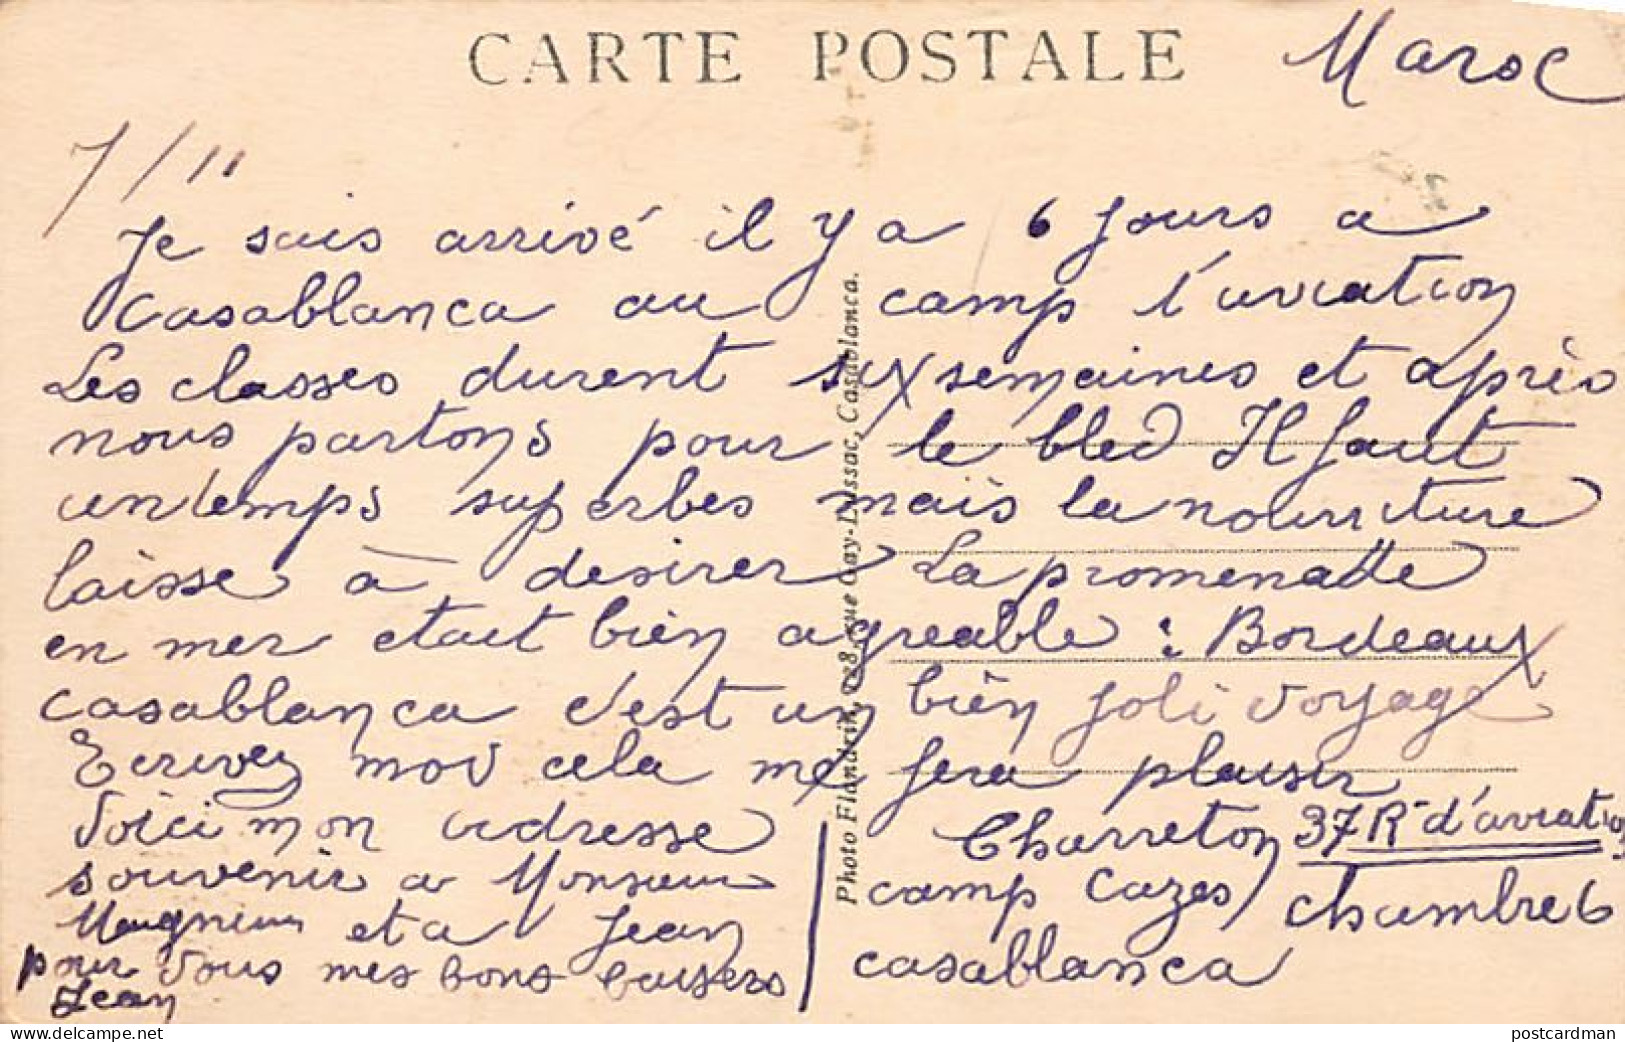 CARTE POSTALE
Maroc
7/11
Je suis arrivé il y a 6 jours a
Casablanca au camp l'aviation
Les classes durent six semaines et après
nous partons pour le bled Il faut
un temps superbes mais la nourriture
laisse à desirer La promenade
en mer etait bien agreable : Bordeaux
Casablanca c'est un bien joli voyage
Ecrivez moi cela me fera plaisir
Voici mon adresse
souvenir a Monsieur
et a Jean
pour vous mes bons baisers
Jean
Charreton 37 R d'aviation
camp Cazes chambre 6
casablanca
Photo Flandrin, rue Gay-Lussac, Casablanca.
delcampe.net
postcardman